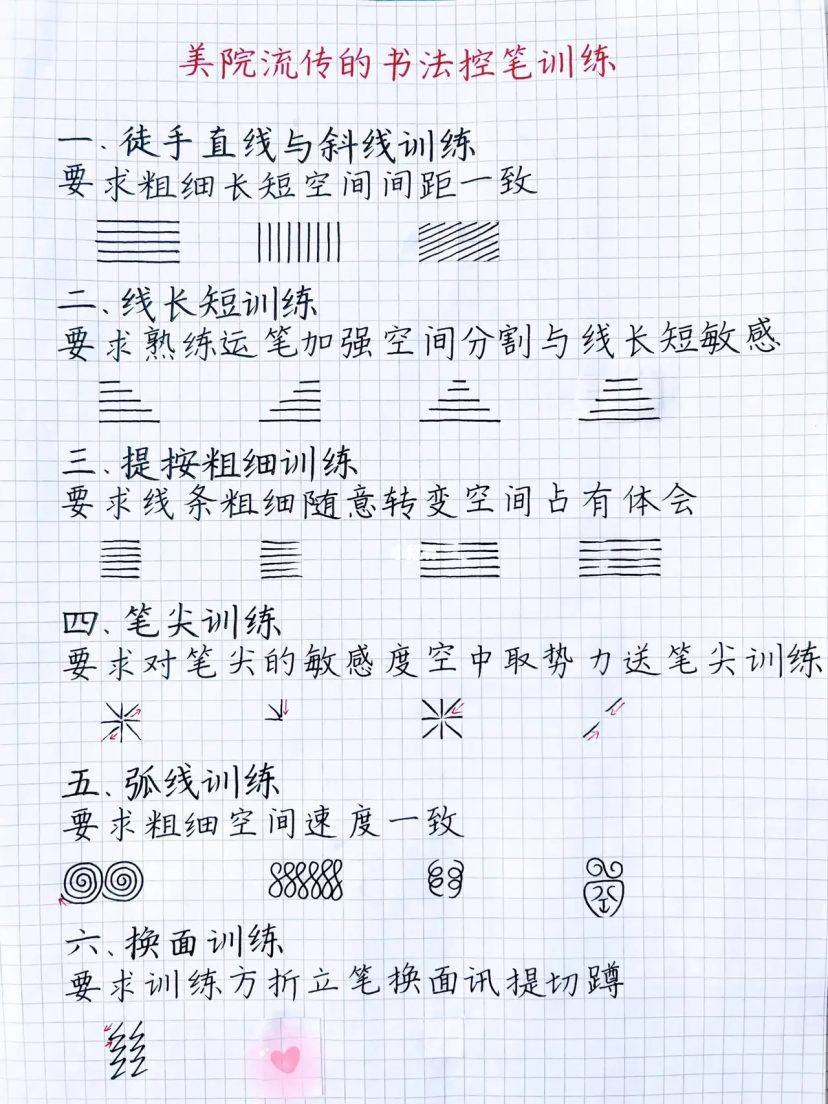 美院流传的书法控笔训练
一、徒手直线与斜线训练
要求粗细长短空间间距一致
二、线长短训练
要求熟练运笔加强空间分割与线长短敏感
三、提按粗细训练
要求线条粗细随意转变空间占有体会
四、笔尖训练
要求对笔尖的敏感度空中取势力送笔尖训练
五、弧线训练
要求粗细空间速度一致
六、换面训练
要求训练方折立笔换面讯提切蹲